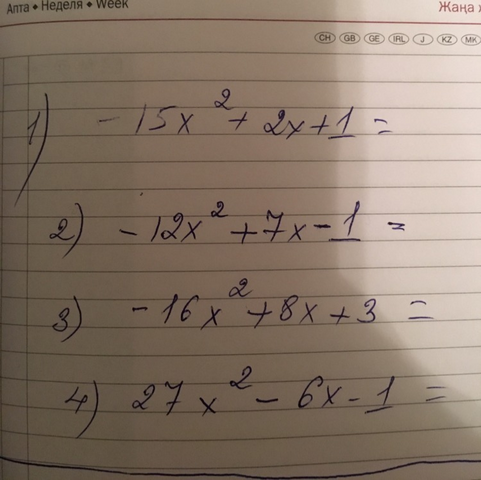 Апта • Неделя • Week
Жаңа
CH GB GE IRL J KZ MK
1) -15x² + 2x + 1 =
2) -12x² + 7x - 1 =
3) -16x² + 8x + 3 =
4) 27x² - 6x - 1 =